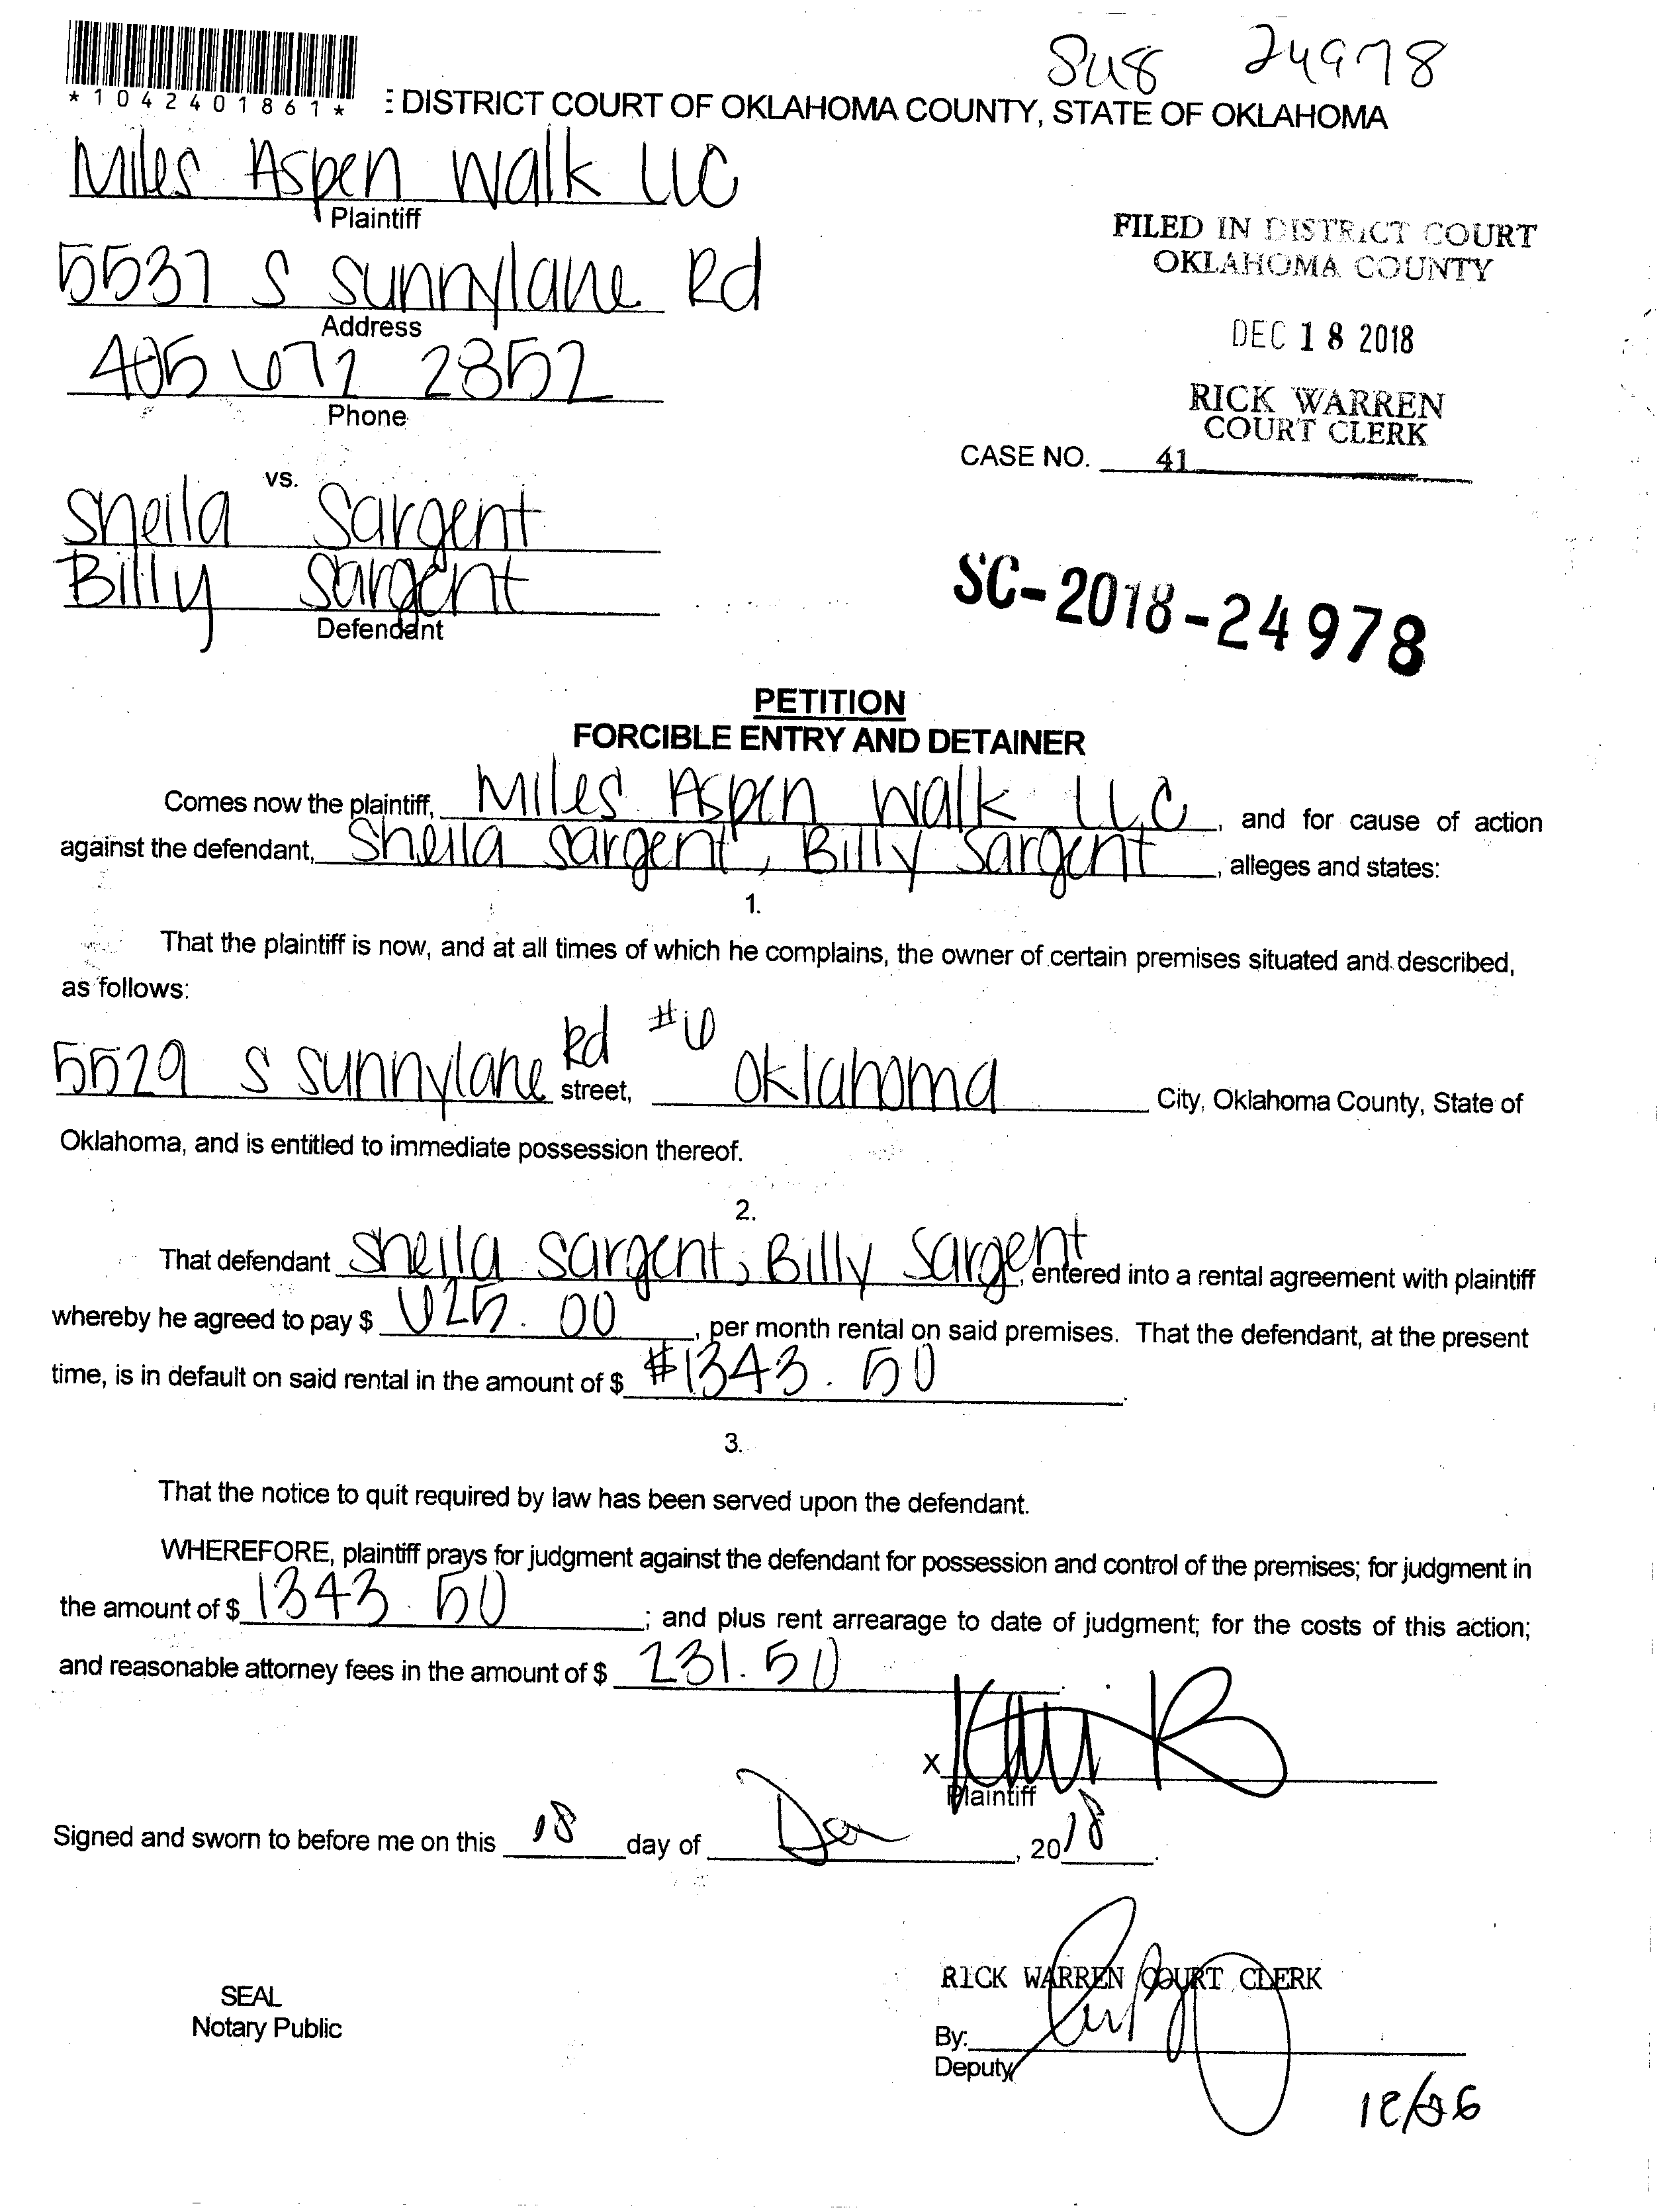 24978
*1042401861*
DISTRICT COURT OF OKLAHOMA COUNTY, STATE OF OKLAHOMA
Miles Aspen Walk LLC
Plaintiff
5537 S Sunnylane Rd
Address
405 672 2852
Phone
FILED IN DISTRICT COURT
OKLAHOMA COUNTY
DEC 18 2018
RICK WARREN
COURT CLERK
CASE NO. 41
vs.
Sheila Sargent
Billy Sargent
Defendant
SC-2018-24978
PETITION
FORCIBLE ENTRY AND DETAINER
Comes now the plaintiff, Miles Aspen Walk LLC, and for cause of action
against the defendant, Sheila Sargent, Billy Sargent, alleges and states:
1.
That the plaintiff is now, and at all times of which he complains, the owner of certain premises situated and described,
as follows:
5529 S Sunnylane Rd street, #6 Oklahoma City, Oklahoma County, State of
Oklahoma, and is entitled to immediate possession thereof.
2.
That defendant Sheila Sargent, Billy Sargent, entered into a rental agreement with plaintiff
whereby he agreed to pay $ 625.00, per month rental on said premises. That the defendant, at the present
time, is in default on said rental in the amount of $ $1343.50.
3.
That the notice to quit required by law has been served upon the defendant.
WHEREFORE, plaintiff prays for judgment against the defendant for possession and control of the premises; for judgment in
the amount of $ 1343.50; and plus rent arrearage to date of judgment; for the costs of this action;
and reasonable attorney fees in the amount of $ 231.50.
X
Plaintiff
Signed and sworn to before me on this 18 day of Dec, 2018.
SEAL
Notary Public
RICK WARREN COURT CLERK
By:
Deputy